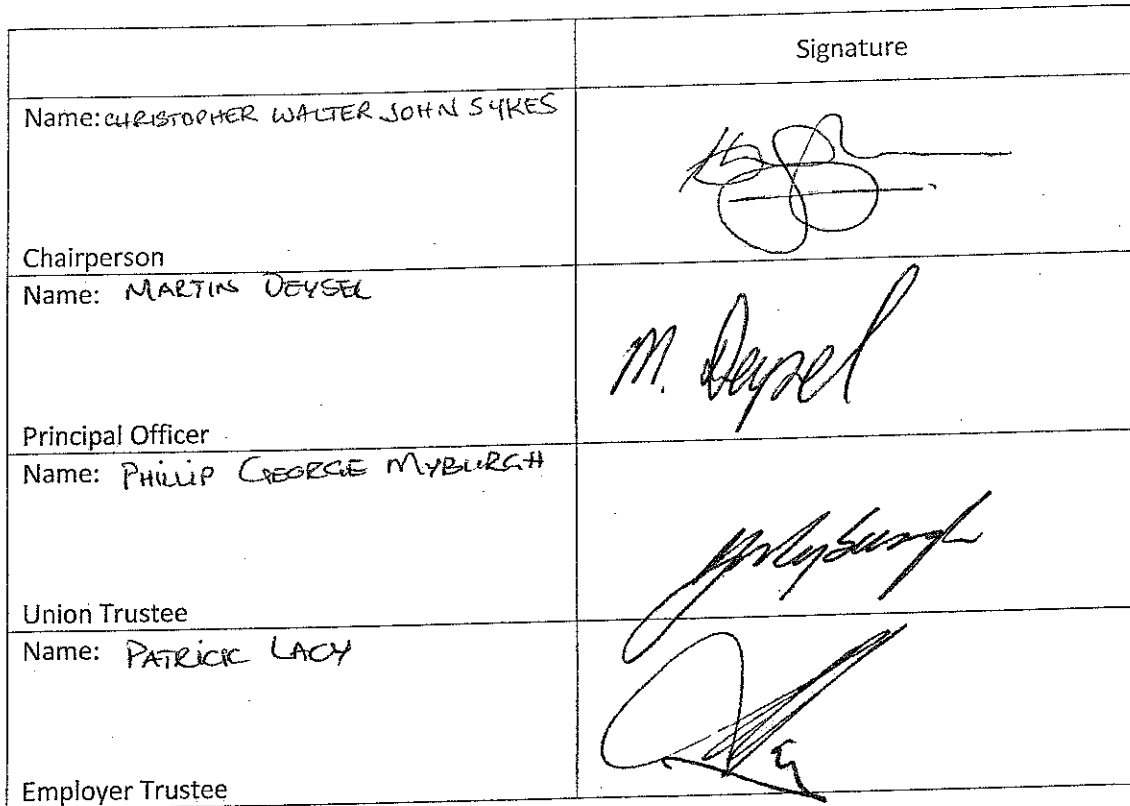 Signature
Name: CHRISTOPHER WALTER JOHN SYKES
Chairperson
Name: MARTIN DEYSEL
M. Deysel
Principal Officer
Name: PHILLIP GEORGE MYBURGH
Union Trustee
Name: PATRICK LACY
Employer Trustee